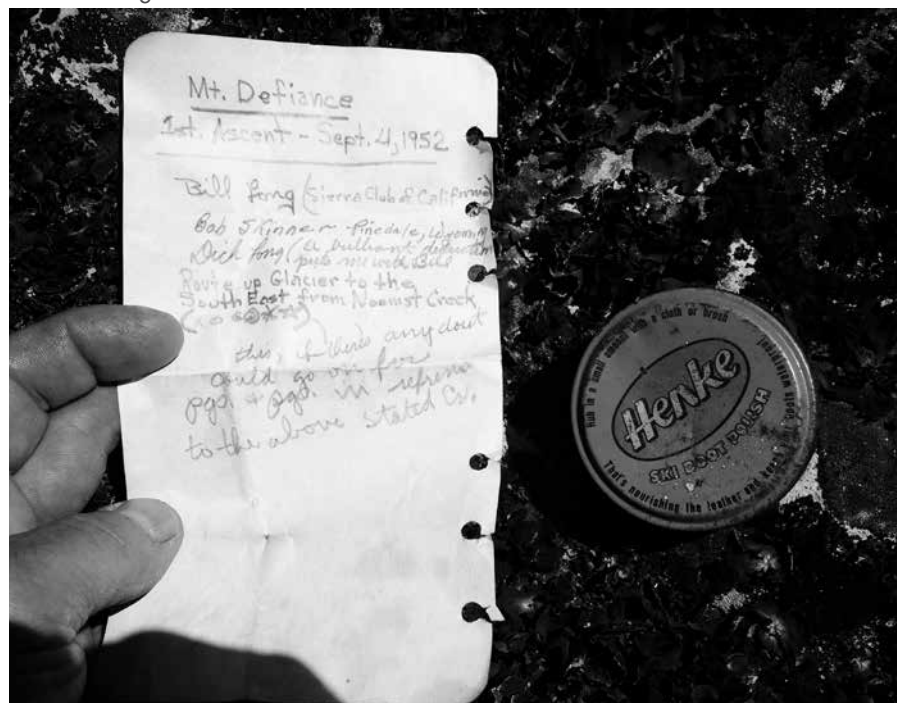 Mt. Defiance
1st. Ascent - Sept. 4, 1952
Bill Long (Sierra Club of California)
Bob Skinner - Pinedale, Wyoming
Dick Long (a brilliant
put me with Bill
Route up Glacier to the
South East from Noomst Creek
this, if there's any dout
could go on for
pgs. + pgs. in
to the above stated Co.
Rub in a small smooth with a cloth or brush
Henke
SKI BOOT POLISH
That's nourishing the leather and keeps boots waterproof